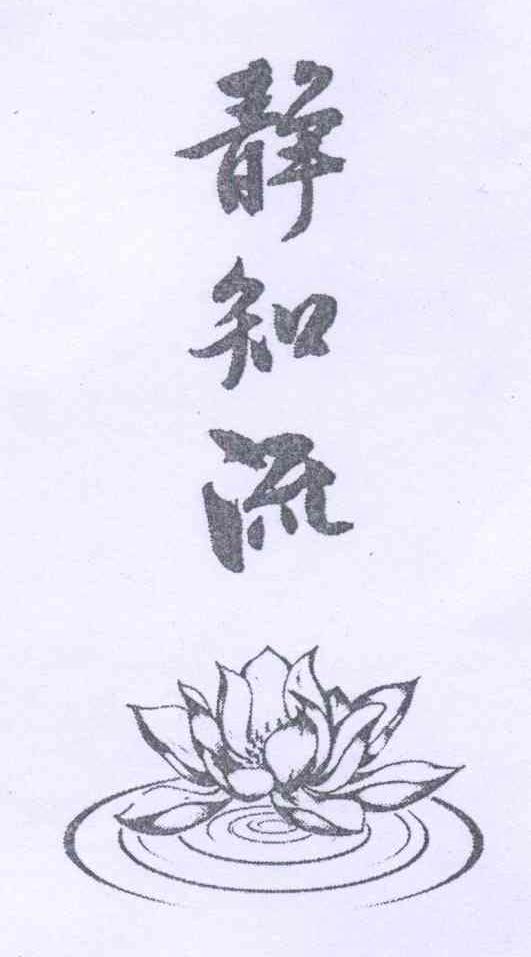 静知流